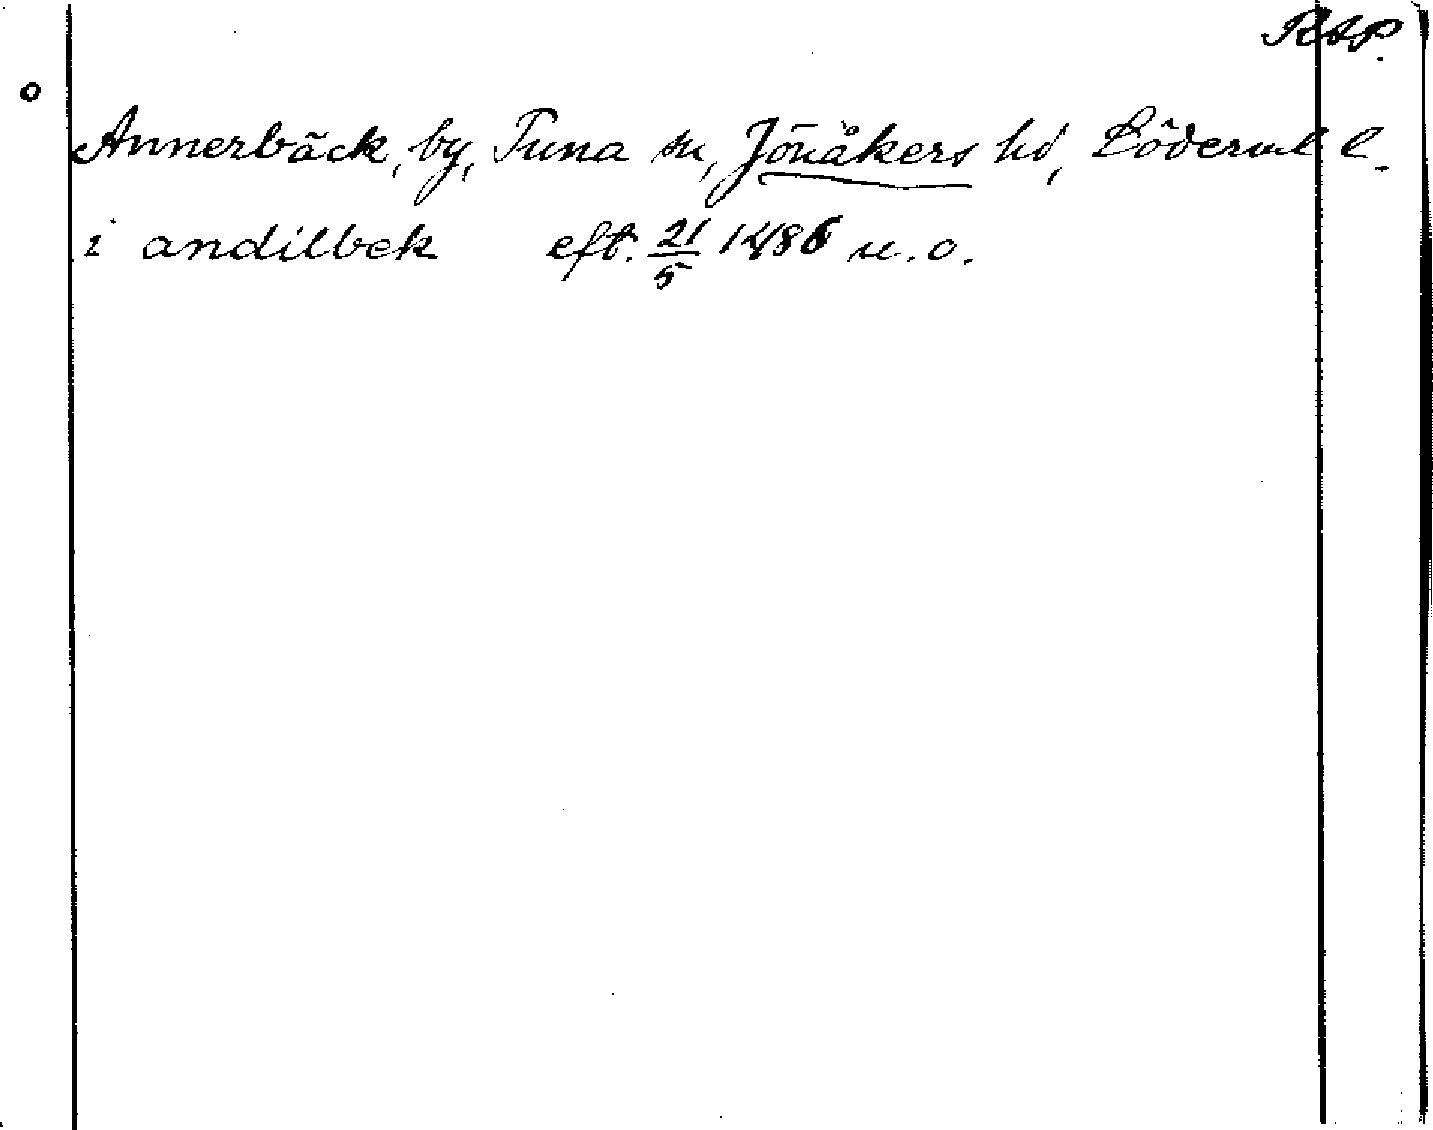 RAP.
o
Annerbäck, by, Tuna sn, Jönåkers hd, Söderml l.
i andilbek eft. 21/5 1486 u.o.